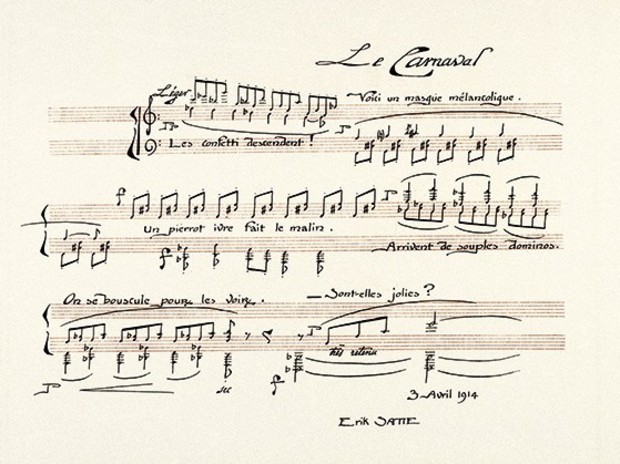 Le Carnaval
Léger
Voici un masque mélancolique.
p
p
Les confetti descendent !
f
p
Un pierrot ivre fait le malin.
f
Arrivent de souples dominos.
On se bouscule pour les voir.
— Sont-elles jolies ?
p
très retenu
p
sec
f
3 Avril 1914
Erik SATIE